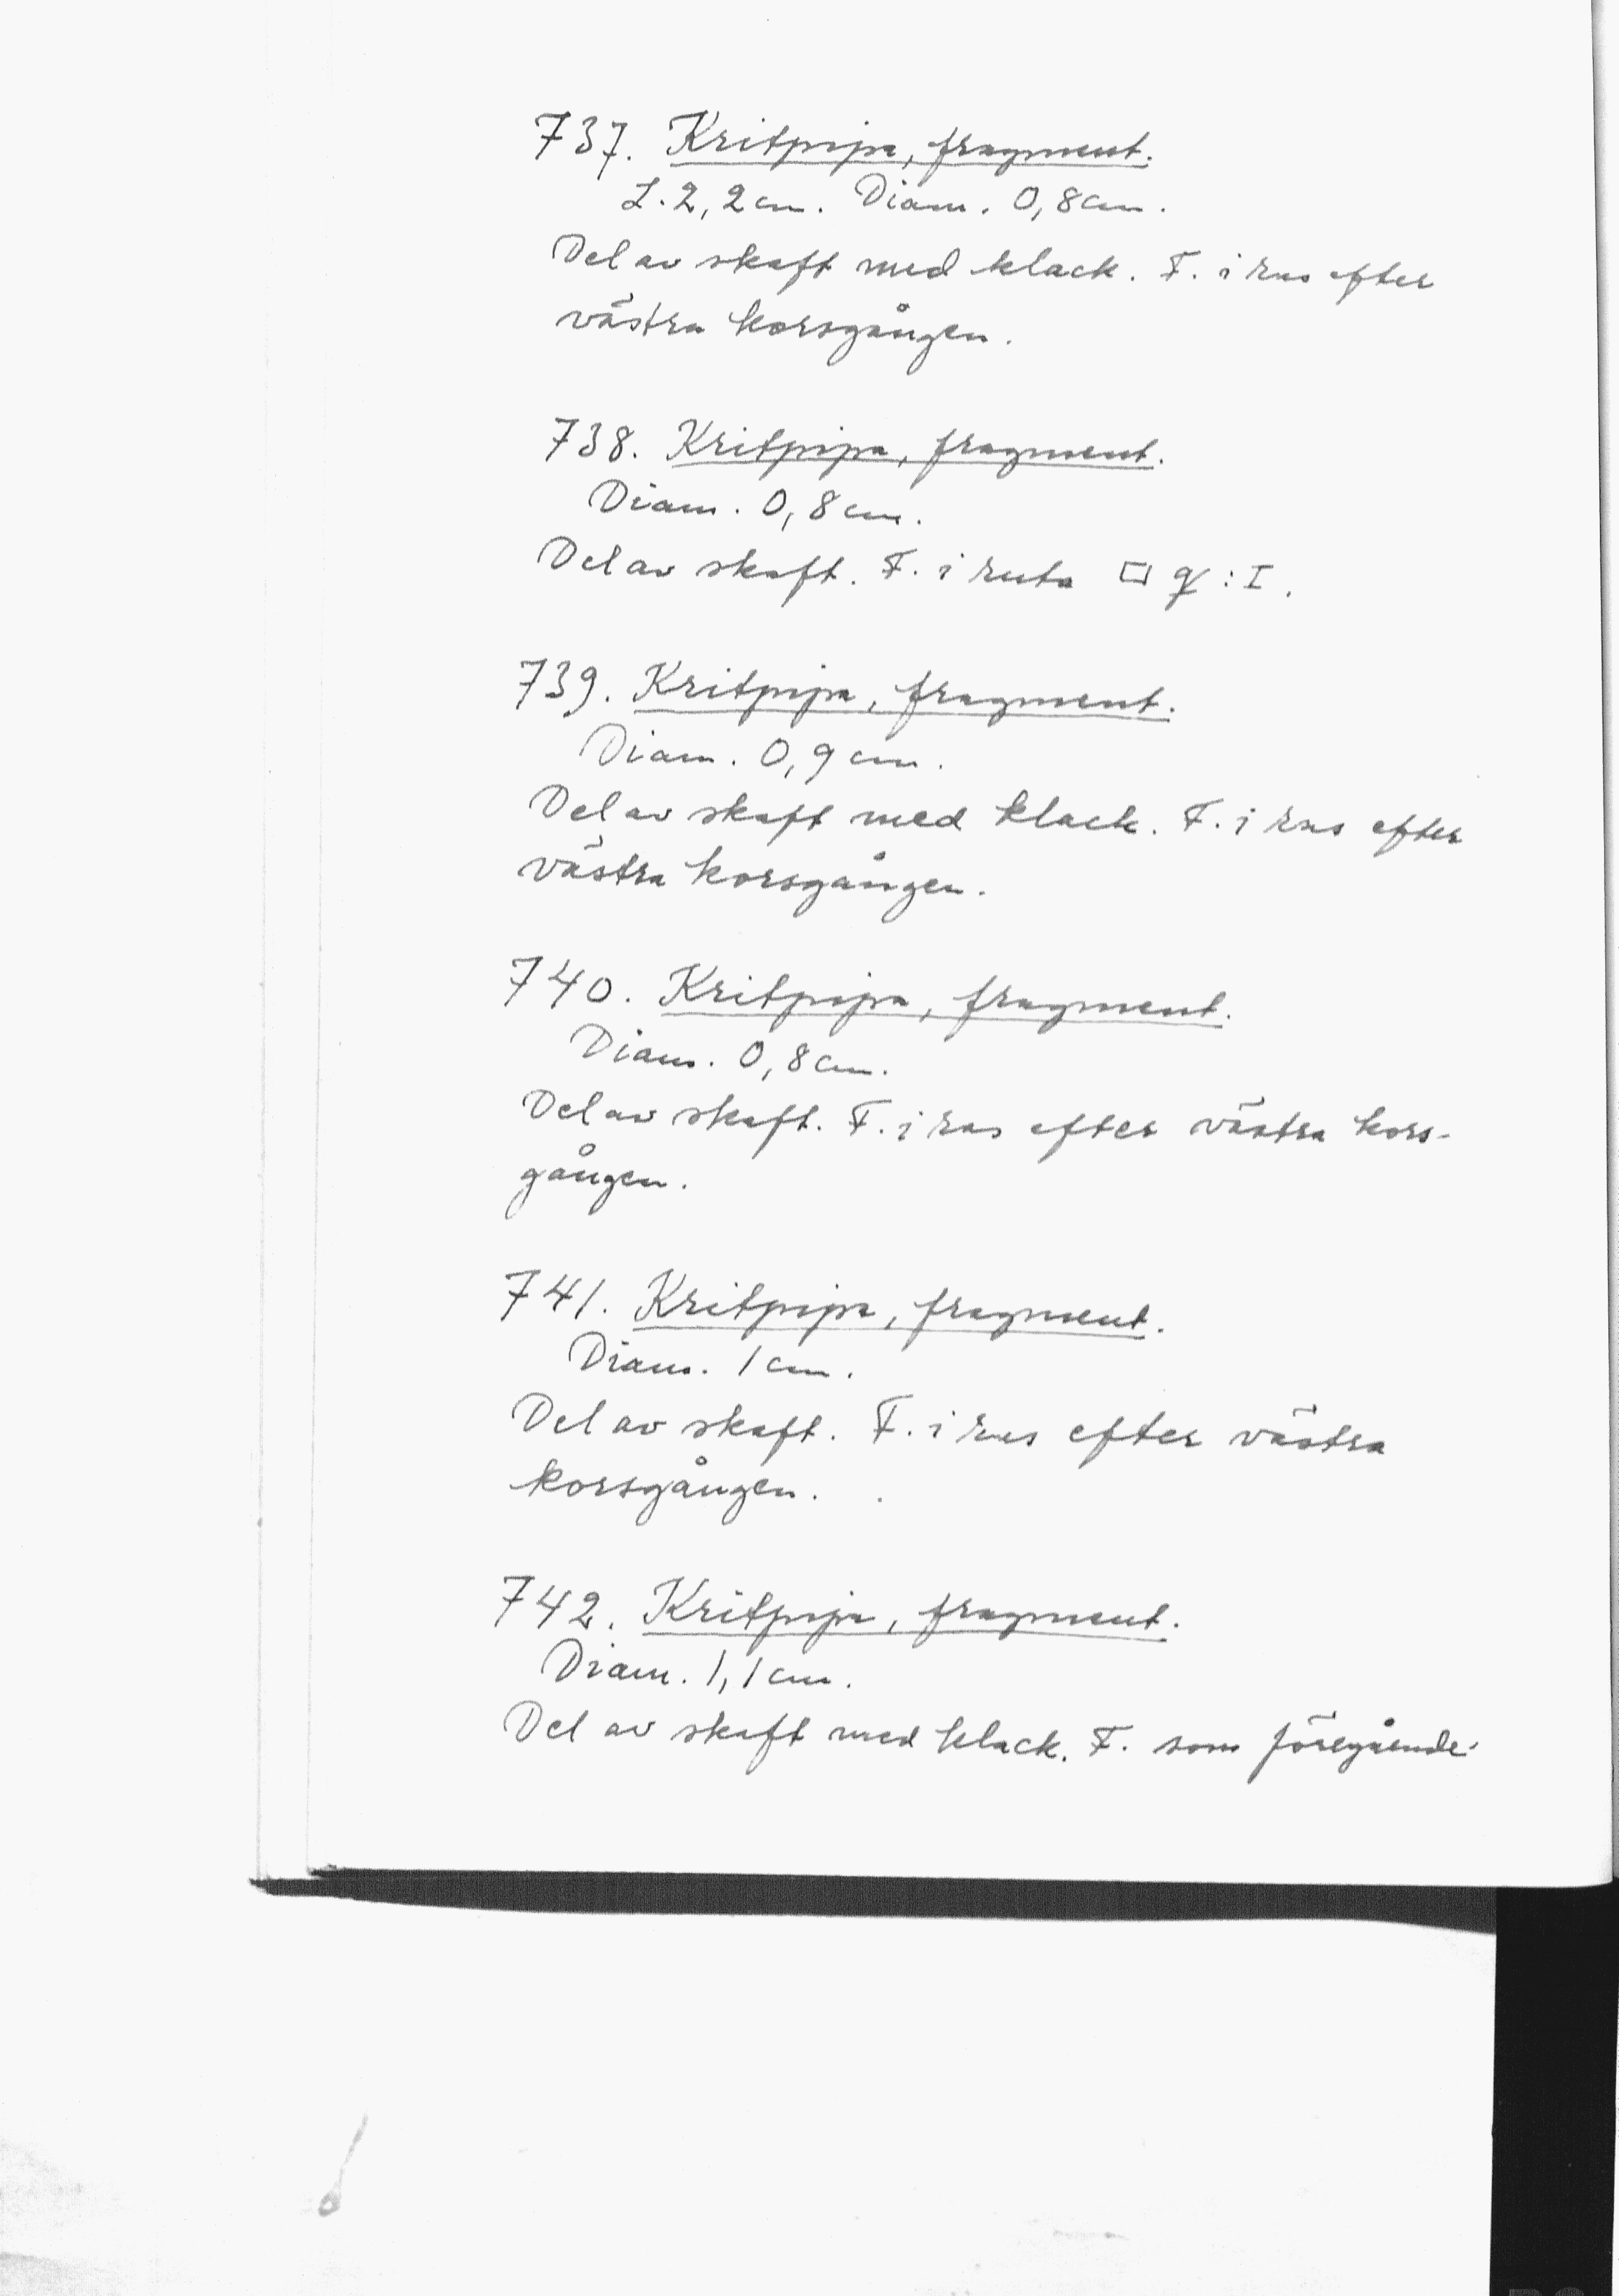 737. Kritpipa, fragment.
L. 2,2 cm. Diam. 0,8 cm.
Del av skaft med klack. F. i ras efter
västra korsgången.
738. Kritpipa, fragment.
Diam. 0,8 cm.
Del av skaft. F. i ruta □ q : I.
739. Kritpipa, fragment.
Diam. 0,9 cm.
Del av skaft med klack. F. i ras efter
västra korsgången.
740. Kritpipa, fragment.
Diam. 0,8 cm.
Del av skaft. F. i ras efter västra kors-
gången.
741. Kritpipa, fragment.
Diam. 1 cm.
Del av skaft. F. i ras efter västra
korsgången.
742. Kritpipa, fragment.
Diam. 1,1 cm.
Del av skaft med klack. F. som föregående.